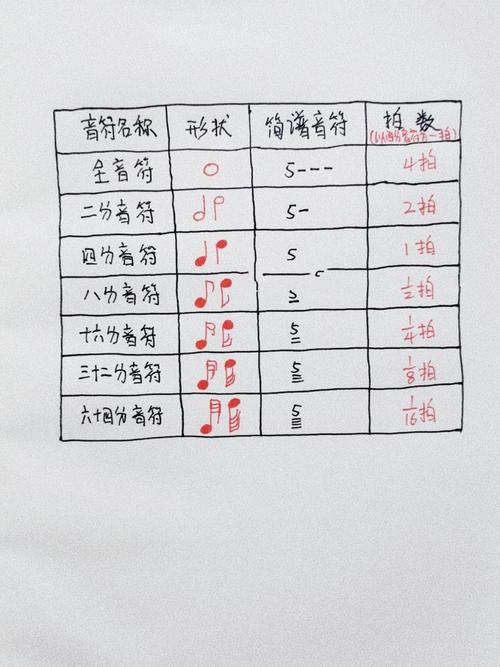 音符名称 形状 简谱音符 拍数
(以四分音符为一拍)
全音符 5--- 4拍
二分音符 5- 2拍
四分音符 5 1拍
八分音符 5 1/2拍
十六分音符 5 1/4拍
三十二分音符 5 1/8拍
六十四分音符 5 1/16拍